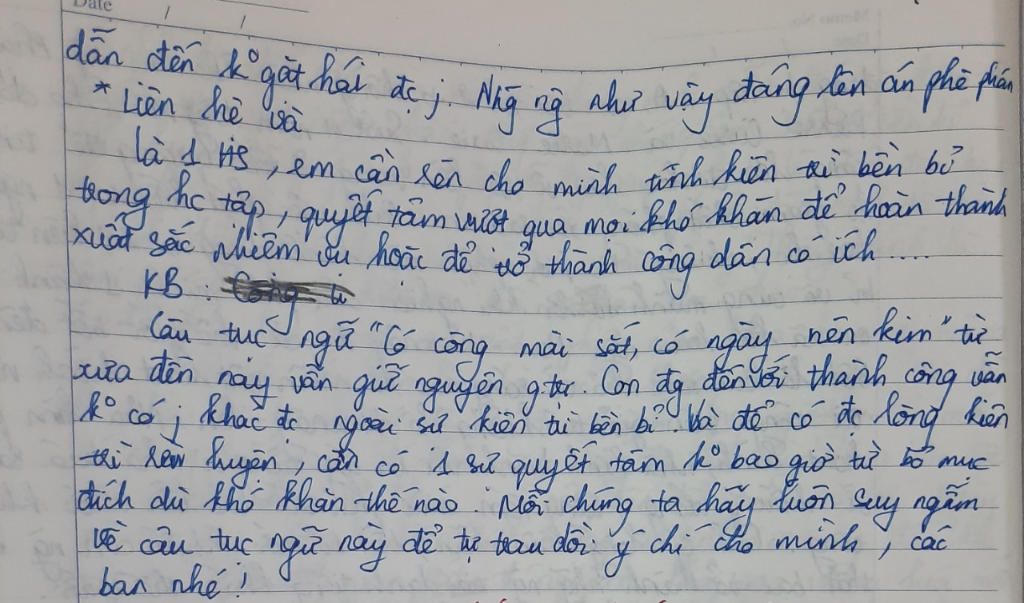 Date / /
dẫn đến kº gặt hái đc j. Nhg ng như vậy đáng lên án phê phán
* Liên hệ và
là 1 HS, em cần rèn cho mình tính kiên trì bền bỉ
trong hc tập, quyết tâm vượt qua mọi khó khăn để hoàn thành
xuất sắc nhiệm vụ hoặc để trở thành công dân có ích....
KB :
Câu tục ngữ "Có công mài sắt, có ngày nên kim" từ
xưa đến nay vẫn giữ nguyên g.trị. Con đg đến với thành công vẫn
kº có j khác đc ngoài sự kiên trì bền bỉ. Và để có đc lòng kiên
trì rèn luyện, cần có 1 sự quyết tâm kº bao giờ từ bỏ mục
đích dù khó khăn thế nào. Mỗi chúng ta hãy luôn suy ngẫm
về câu tục ngữ này để tự trau dồi ý chí cho mình, các
bạn nhé!